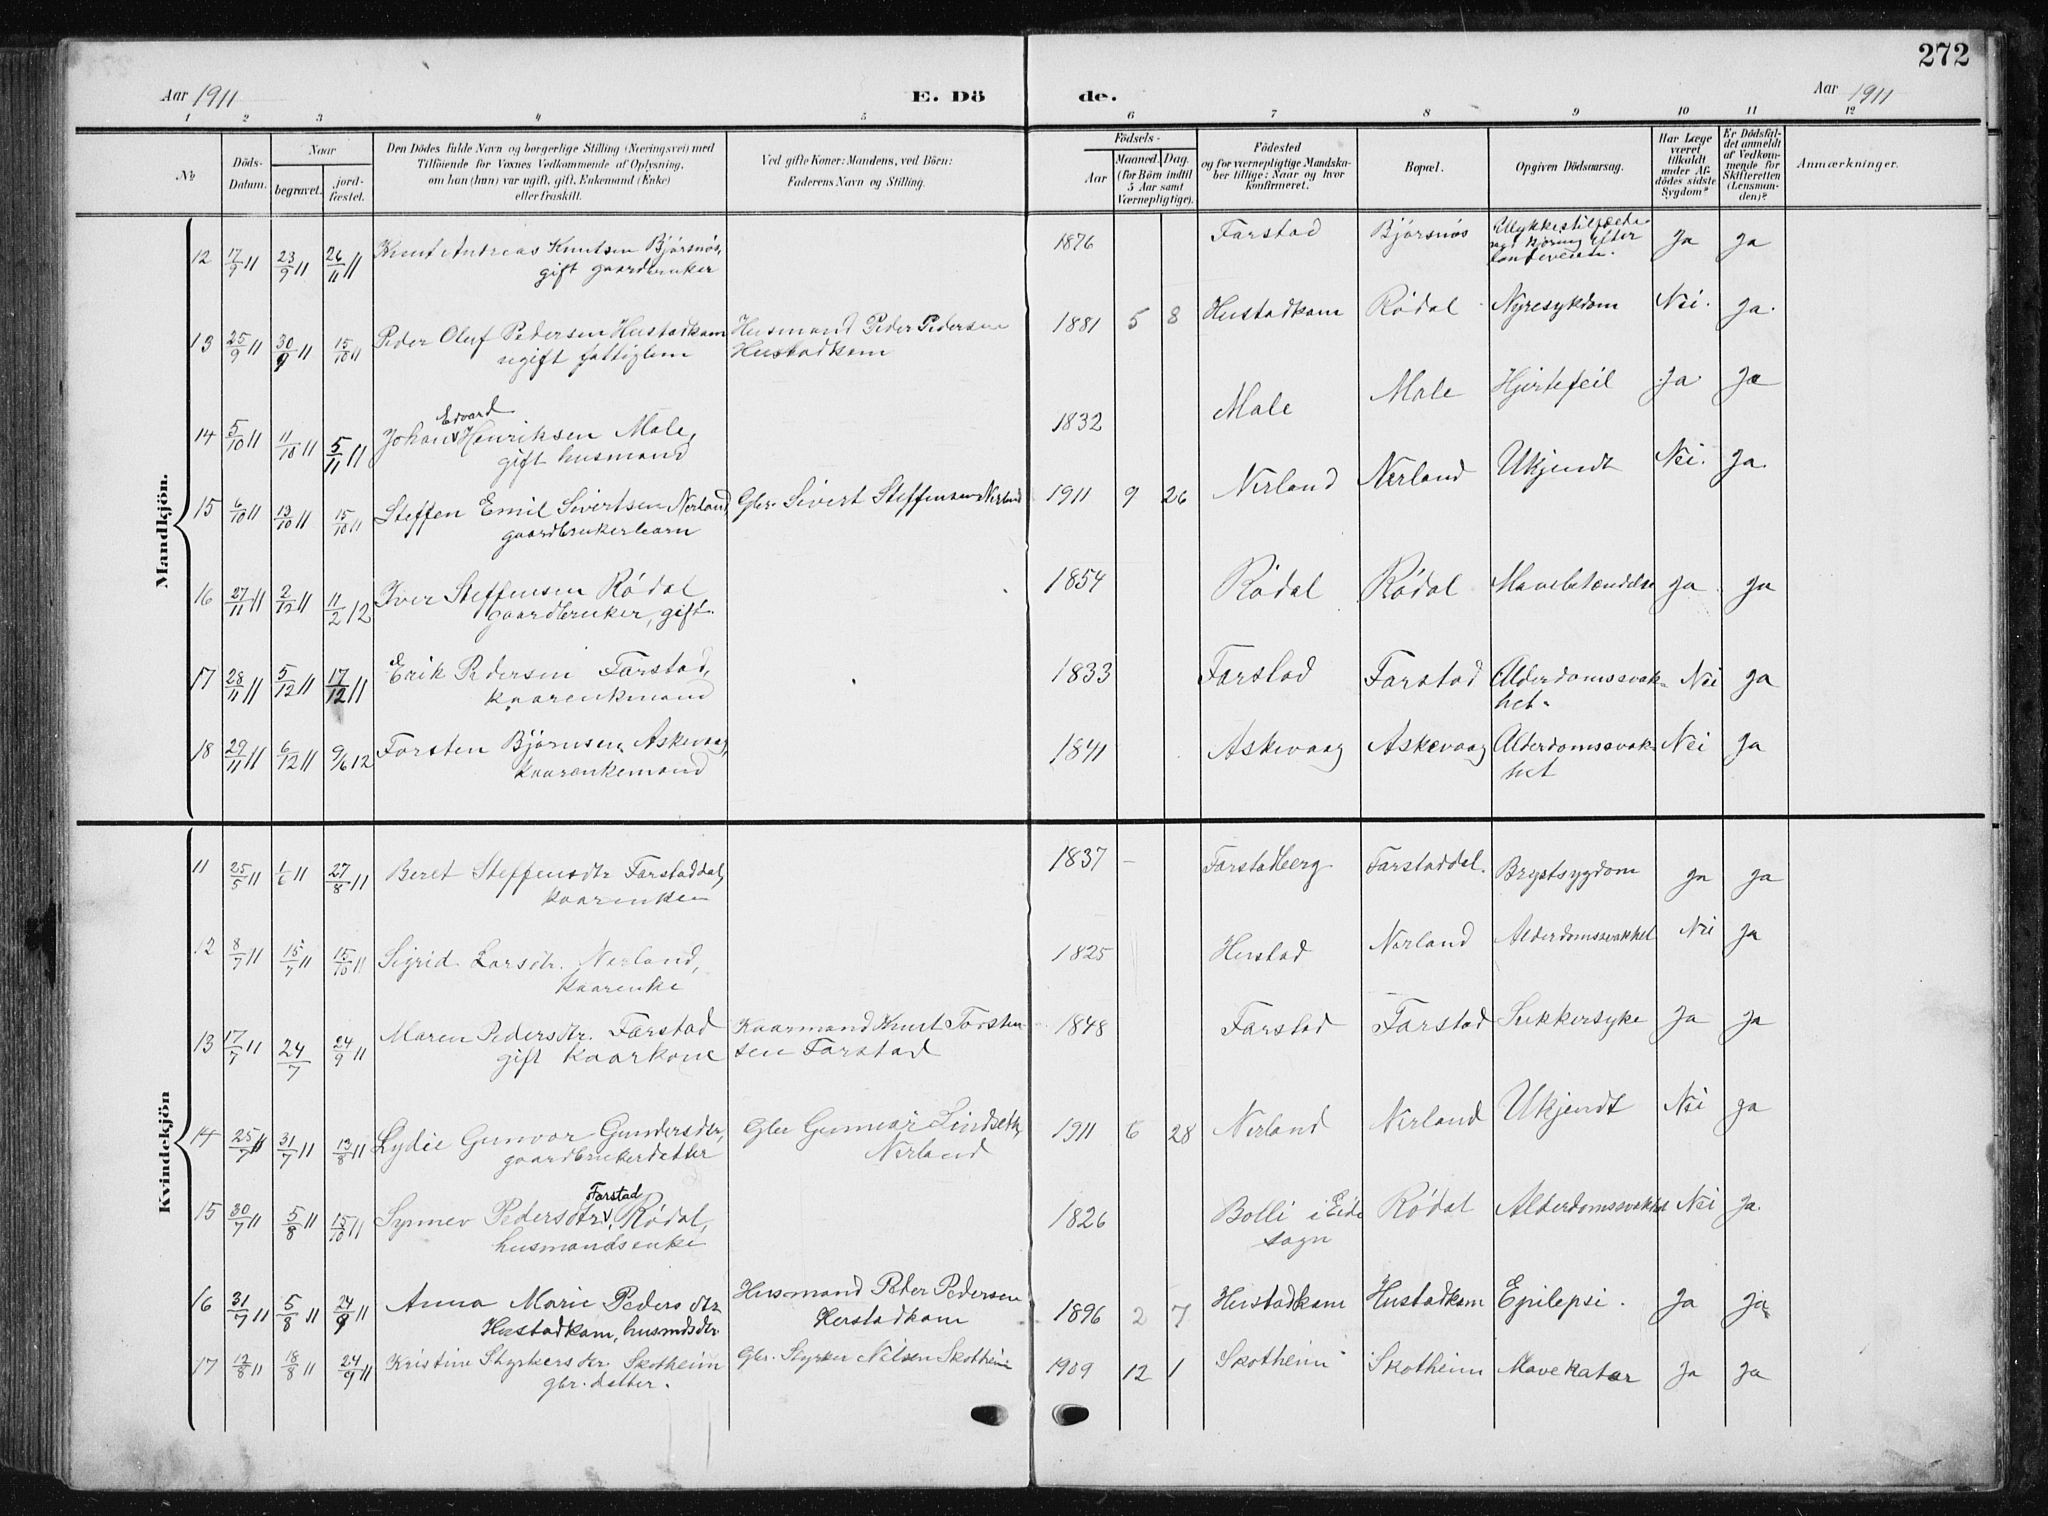 272
Aar 1911 E. Dö de. Aar 1911
1 2 3 4 5 6 7 8 9 10 11 12
No
Döds-Datum.
Naar
begravet.
jord-fæstet.
Den Dödes fulde Navn og borgerlige Stilling (Næringsvei) med
Tilföiende for Voxnes Vedkommende af Oplysning,
om han (hun) var ugift, gift, Enkemand (Enke)
eller fraskilt.
Ved gifte Koner: Mandens, ved Börn:
Faderens Navn og Stilling.
Födsels-
Aar
Maaned. Dag.
(for Börn indtil
5 Aar samt
Værnepligtige).
Födested
og for værnepligtige Mandska-
ber tillige: Naar og hvor
konfirmeret.
Bopæl.
Opgiven Dödsaarsag.
Har Læge
været
tilkaldt
under Af-
dödes sidste
Sygdom?
Er Dödsfal-
det anmeldt
af Vedkom-
mende for
Skifteretten
(Lensman-
den)?
Anmærkninger.
Mandkjön.
12 17/9 11 23/9 11 26/11 11 Knut Andreas Knutsen Bjørsnøs, 1876 Farstad Bjørsnøs Ulykkestilfælde Ja Ja
gift gaardbruker
ved kjøring efter
landeveien.
13 25/9 11 30/9 11 15/10 11 Peder Oluf Pedersen Hustadkam Husmand Peder Pedersen 1881 5 8 Hustadkam Rødal Nyresykdom Nei. Ja.
ugift fattiglem Hustadkam
14 5/10 11 11/10 11 5/11 11 Johan Edvard Henriksen Male, 1832 Male Male Hjertefeil Ja Ja
gift husmand
15 6/10 11 13/10 11 15/10 11 Steffen Emil Sivertsen Nerland, Gbr. Sivert Steffensen Nerland 1911 9 26 Nerland Nerland Ukjendt Nei. Ja.
gaardbrukerbarn
16 27/11 11 2/12 11 11/2 12 Iver Steffensen Rødal 1854 Rødal Rødal Mavebetændelse Ja Ja
gaardbruker, gift.
17 28/11 11 5/12 11 17/12 11 Erik Pedersen Farstad, 1833 Farstad Farstad Alderdomssvak- Nei Ja
kaarenkmand het.
18 29/11 11 6/12 11 9/6 12 Torsten Bjørnsen Askevaag, 1841 Askevaag Askevaag Alderdomssvak- Nei Ja
kaarenkemand het
Kvindekjön
11 25/5 11 1/6 11 27/8 11 Beret Steffensdtr Farstaddal, 1837 - Farstadberg Farstaddal. Brystsygdom Ja Ja
kaarenken
12 8/7 11 15/7 11 15/10 11 Sigrid Larsdtr. Nerland, 1825 Hustad Nerland Alderdomssvakhet Nei Ja
kaarenke
13 17/7 11 24/7 24/9 11 Maren Pedersdtr. Farstad Kaarmand Knut Torsten- 1848 Farstad Farstad Sukkersyke Ja Ja
gift kaarkone sen Farstad
14 25/7 11 31/7 11 13/8 11 Lydie Gunvor Gundersdtr, Gbr Gunnar Lindseth, 1911 6 28 Nerland Nerland Ukjendt Nei Ja
gaardbrukerdatter Nerland
15 30/7 11 5/8 11 15/10 11 Synnev Pedersdtr Farstad, Rødal, 1826 Bolli i Eide Rødal Alderdomssvakhet Nei Ja.
husmandsenke sogn
16 31/7 11 5/8 11 24/9 11 Anna Marie Pedersdtr Husmand Peder Pedersen 1896 2 7 Hustadkam Hustadkam Epilepsi. Ja Ja
Hustadkam, husmdsdtr Hustadkam
17 12/8 11 18/8 11 24/9 11 Kristine Styrkersdtr. Skotheim Gbr. Styrker Nilsen Skotheim 1909 12 1 Skotheim Skotheim Mavekatar Ja Ja
gbr. datter.